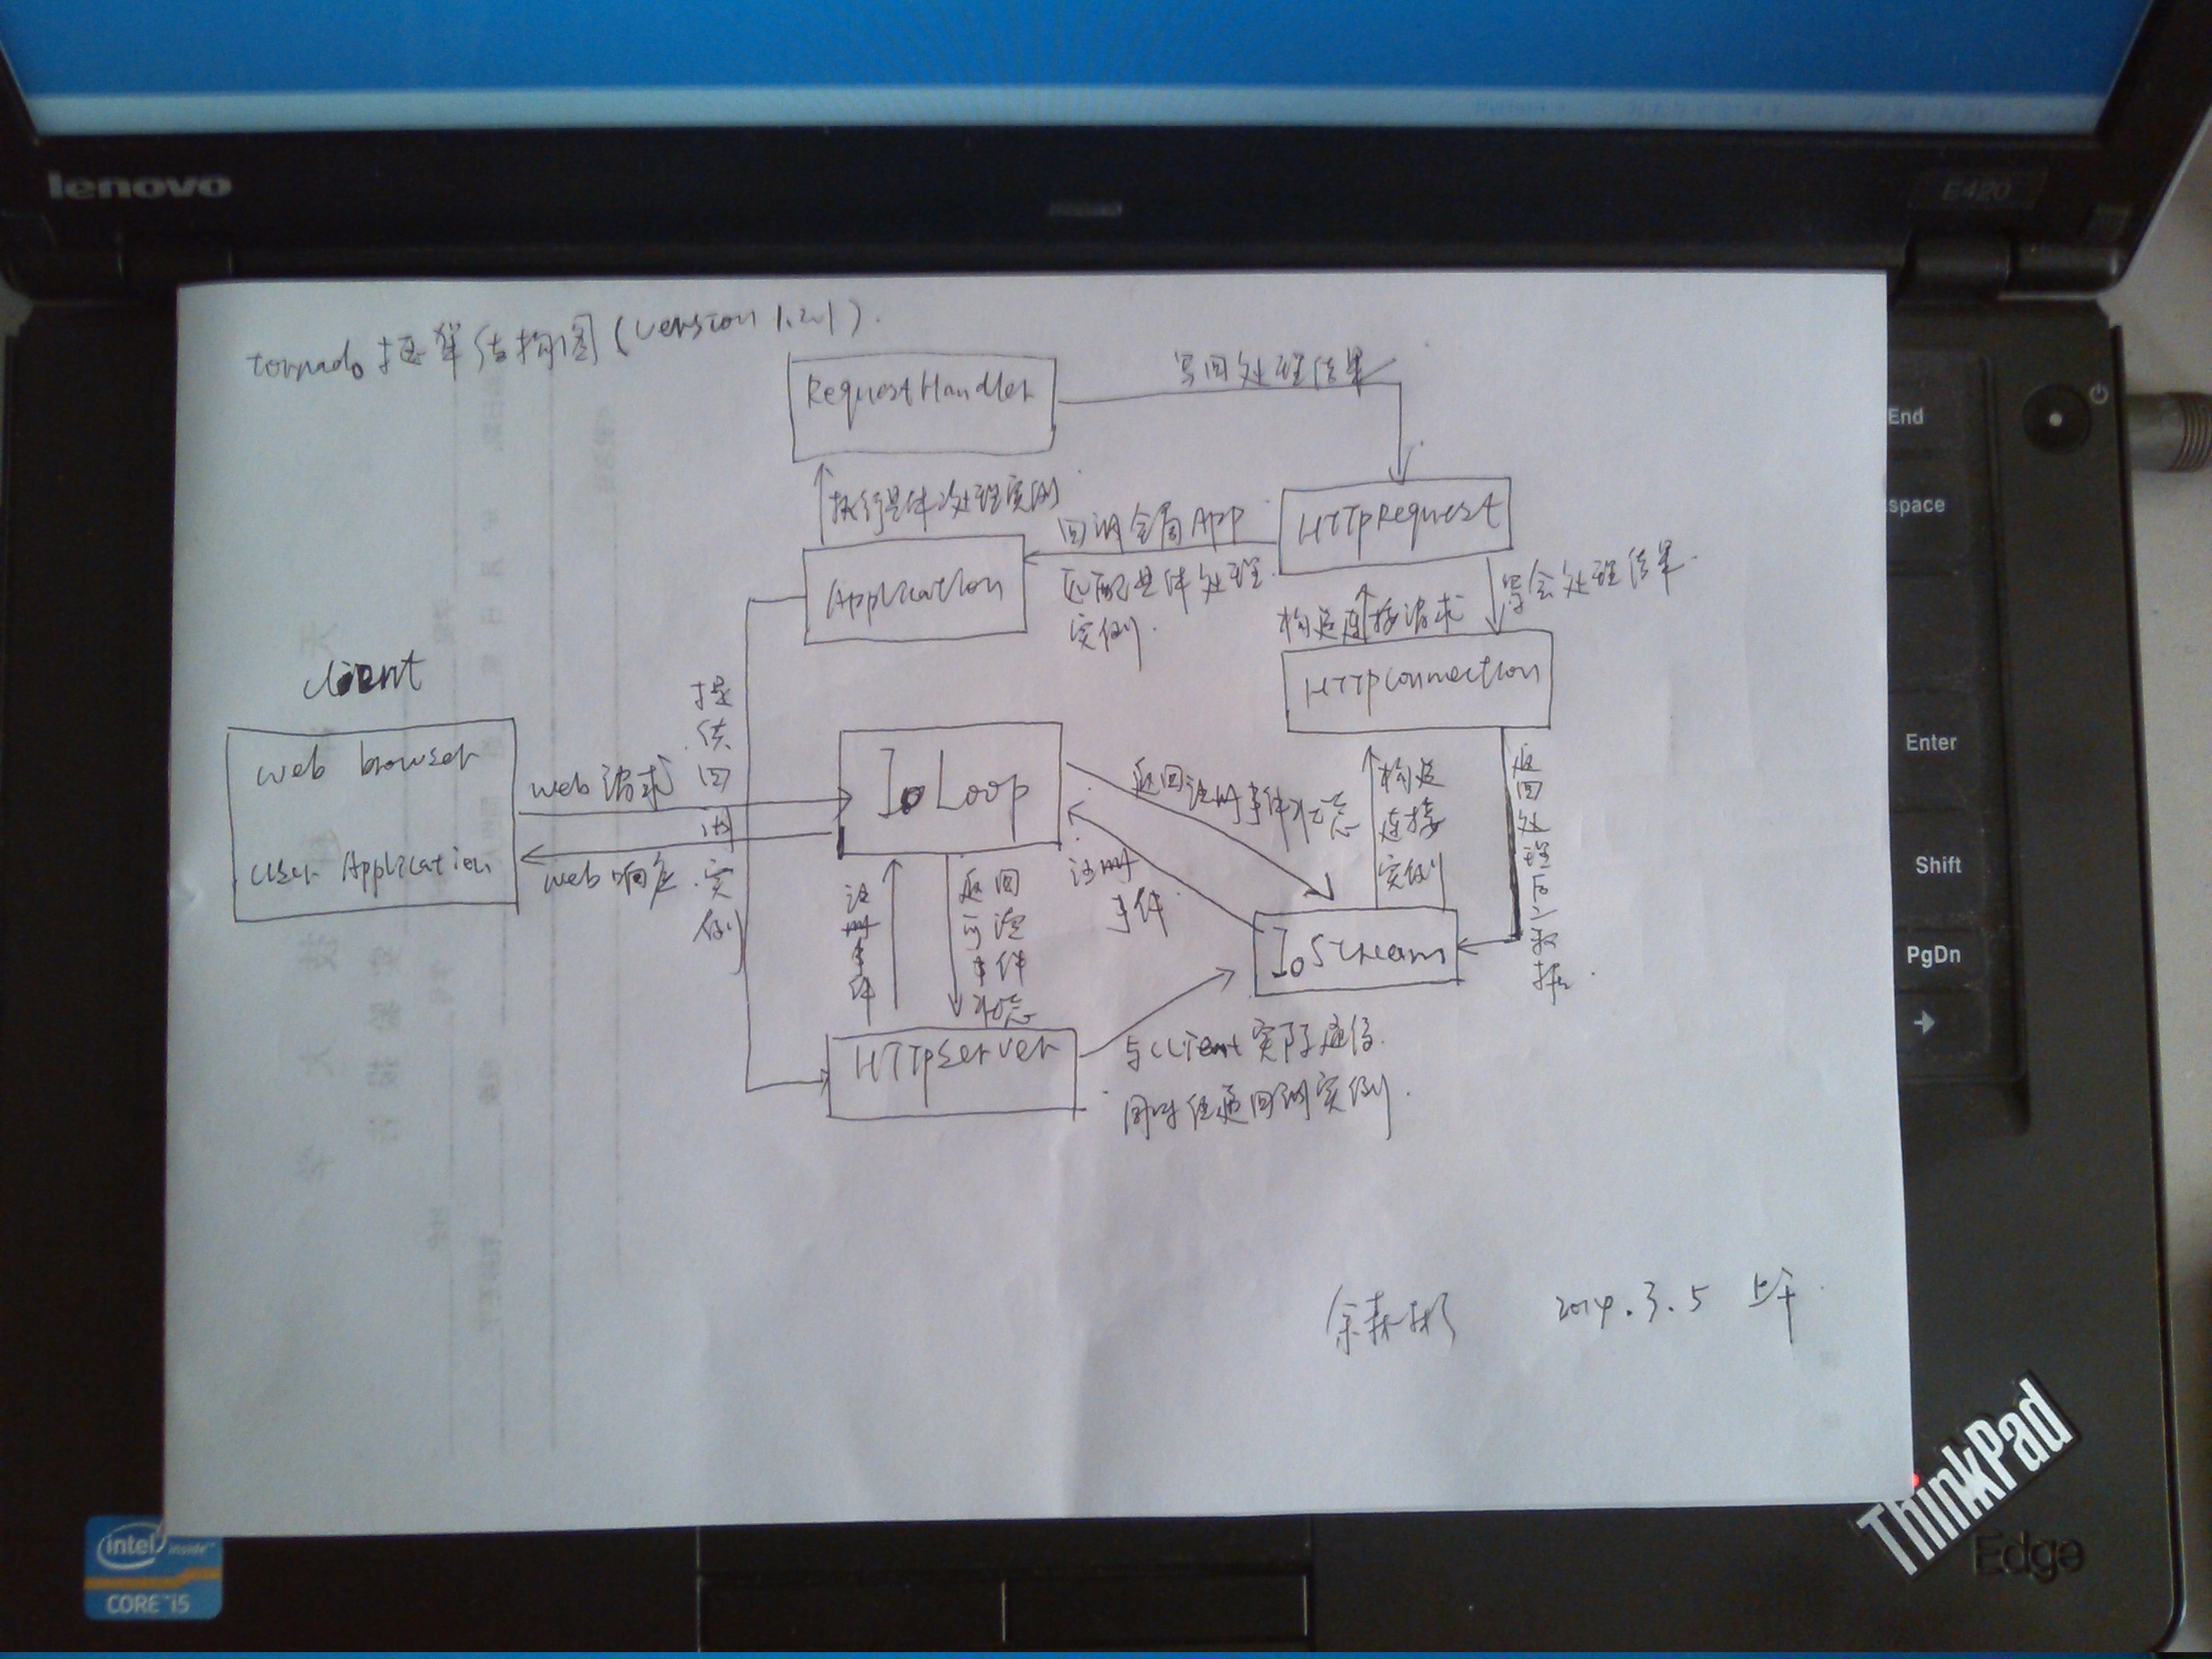 lenovo
E420
tornado框架结构图(version 1.2.1).
RequestHandler
写回处理结果
执行具体处理实例
HTTPRequest
回调全局App
匹配具体处理
实例.
Application
写会处理结果.
构造连接请求
HTTPConnection
client
web browser
user Application
web请求
web响应
提供回调实例
IoLoop
返回注册事件状态
注册
事件
构造
连接
实例
返回处理后数据
注册事件
返回可读事件状态
IoStream
HTTPServer
与client实际通信.
同时传递回调实例.
余森彬 2014.3.5 上午
End
space
Enter
Shift
PgDn
intel inside™
CORE™ i5
ThinkPad
Edge